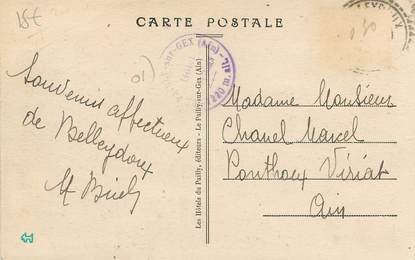 CARTE POSTALE
Souvenir affectueux
de Belleydoux
Madame Monsieur
Chanel Marcel
Ponthoux Viriat
Ain
Les Hôtels du Pailly, éditeurs - Le Pailly-sur-Gex (Ain)
sur-GEX (Ain)